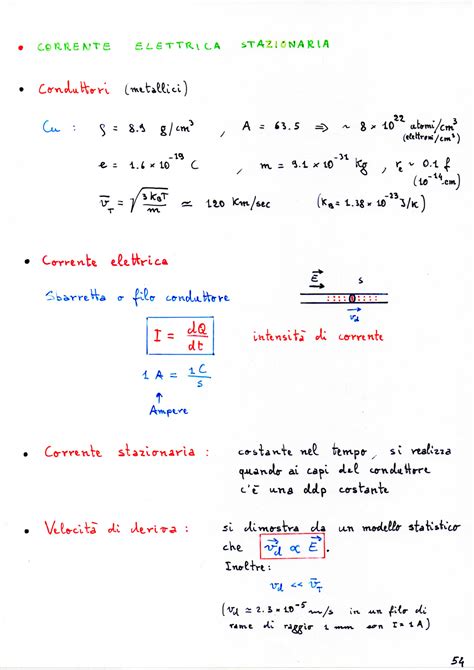 • CORRENTE ELETTRICA STAZIONARIA
• Conduttori (metallici)
Cu : ρ = 8.9 g/cm³ , A = 63.5 ⇒ ~ 8 × 10²² atomi/cm³
(elettroni/cm³)
e = 1.6 × 10⁻¹⁹ C , m = 9.1 × 10⁻³¹ Kg , rₑ ~ 0.1 f
(10⁻¹⁴ cm)
v̅_T = √(3 K_B T / m) ≃ 120 Km/sec (K_B = 1.38 × 10⁻²³ J/K)
• Corrente elettrica
E⃗ S
Sbarretta o filo conduttore
v⃗_d
I = dQ/dt intensità di corrente
1 A = 1C/s
↑
Ampere
• Corrente stazionaria : costante nel tempo, si realizza
quando ai capi del conduttore
c'è una ddp costante
• Velocità di deriva : si dimostra da un modello statistico
che v⃗_d ∝ E⃗ .
Inoltre:
v_d << v̅_T
(v_d ≃ 2.3 × 10⁻⁵ m/s in un filo di
rame di raggio 1 mm con I = 1 A)
54